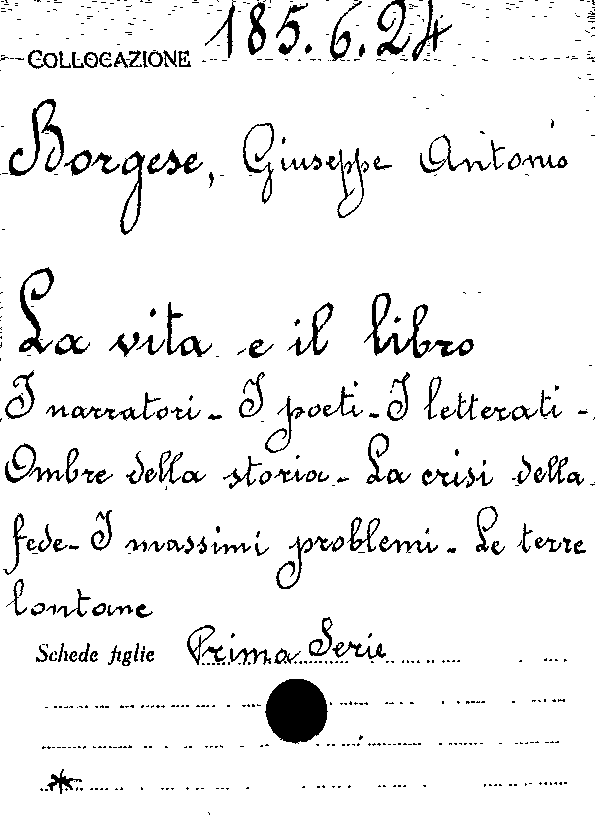 COLLOCAZIONE 185.6.24
Borgese, Giuseppe Antonio
La vita e il libro
I narratori - I poeti - I letterati -
Ombre della storia - La crisi della
fede - I massimi problemi - Le terre
lontane
Schede figlie Prima Serie
*